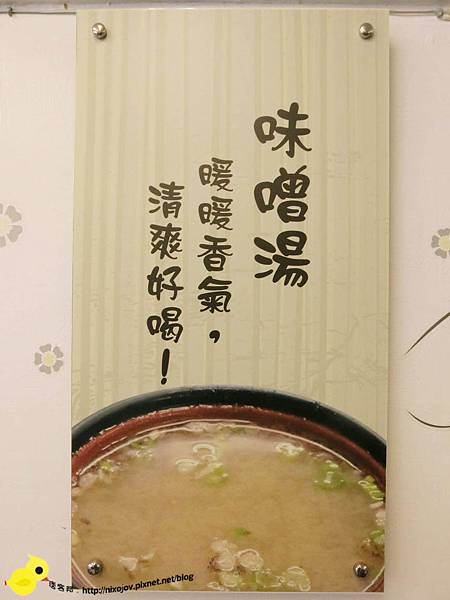 味噌湯
暖暖香氣，
清爽好喝！
痞客邦：http://nixojov.pixnet.net/blog